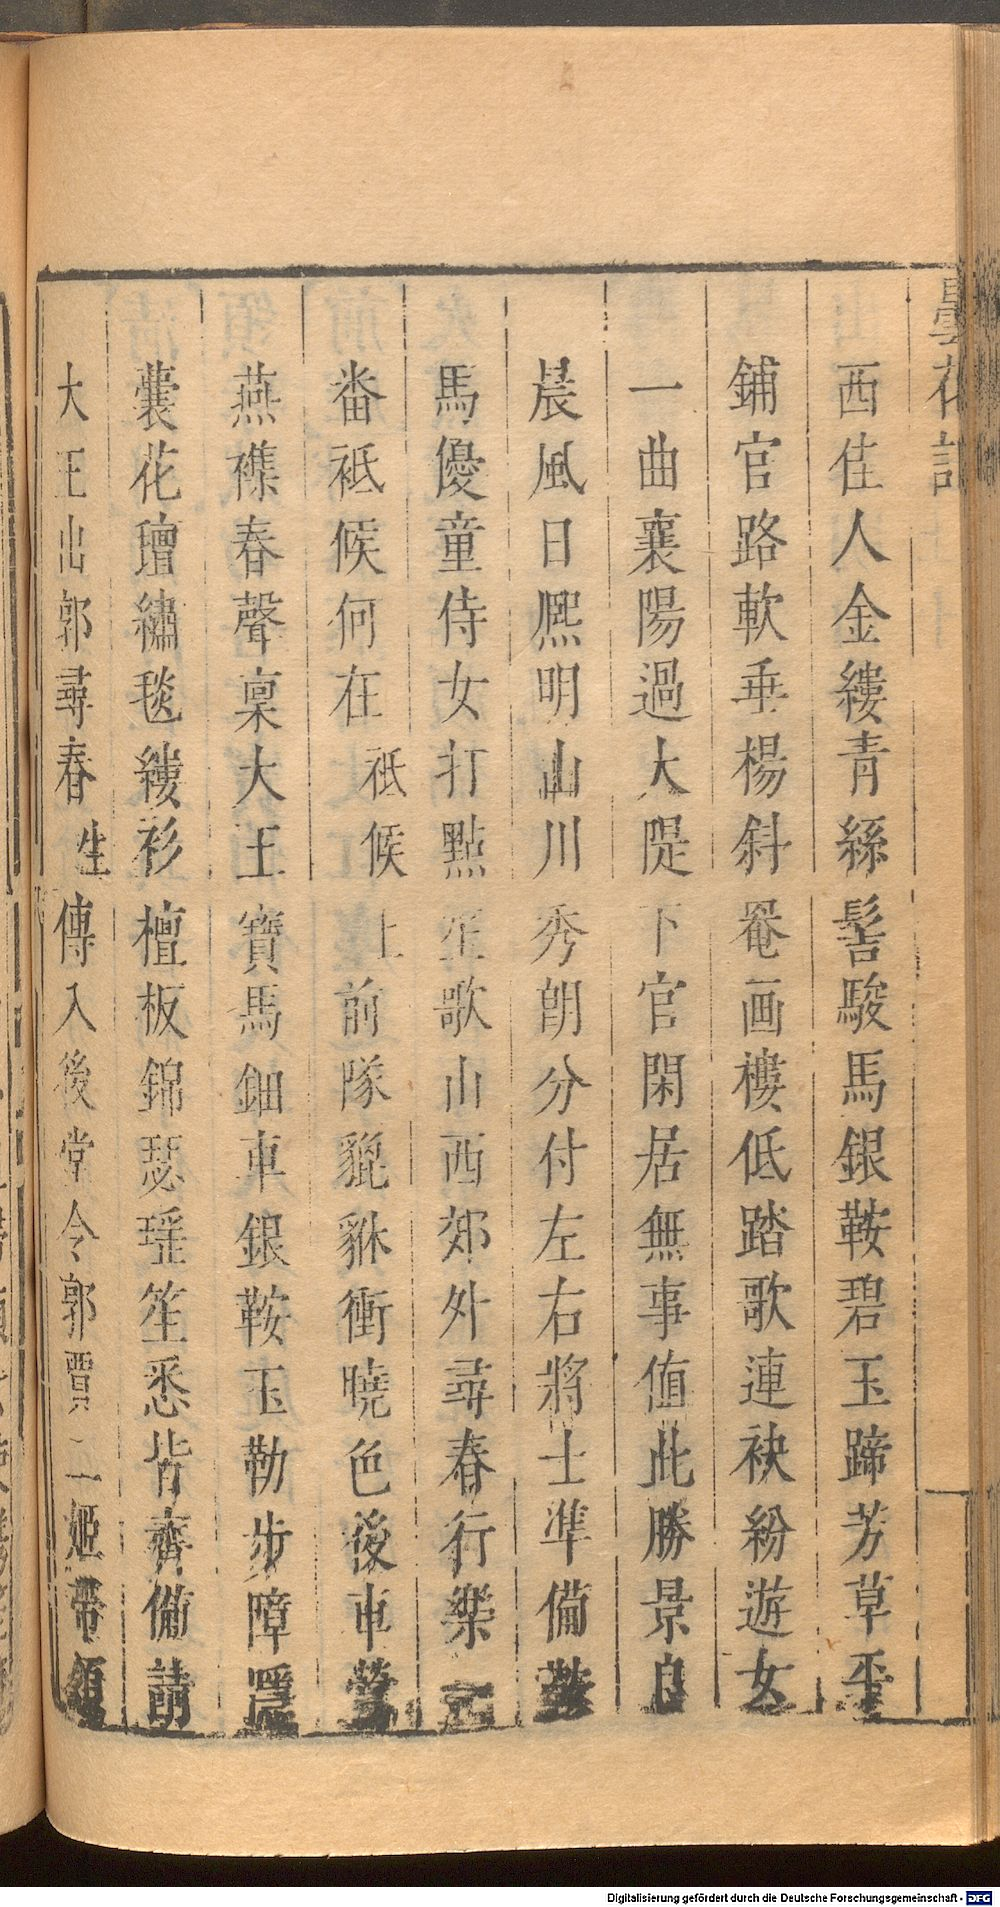 曇花記
西佳人金縷青絲髻駿馬銀鞍碧玉蹄芳草平
鋪官路軟垂楊斜罨画樓低踏歌連袂紛遊女
一曲襄陽過大隄下官閑居無事值此勝景良
晨風日熈明山川秀朗分付左右將士準備鞍
馬優童侍女打點笙歌山西郊外尋春行樂一
番祗候何在祗候上前隊貔貅衝曉色後車鶯
燕襍春聲稟大王寶馬鈿車銀鞍玉勒步障隱
囊花璮繡毯縷衫檀板錦瑟瑶笙悉皆齊備請
大王出郭尋春生傳入後堂令郭賈二姬帶領
Digitalisierung gefördert durch die Deutsche Forschungsgemeinschaft - DFG